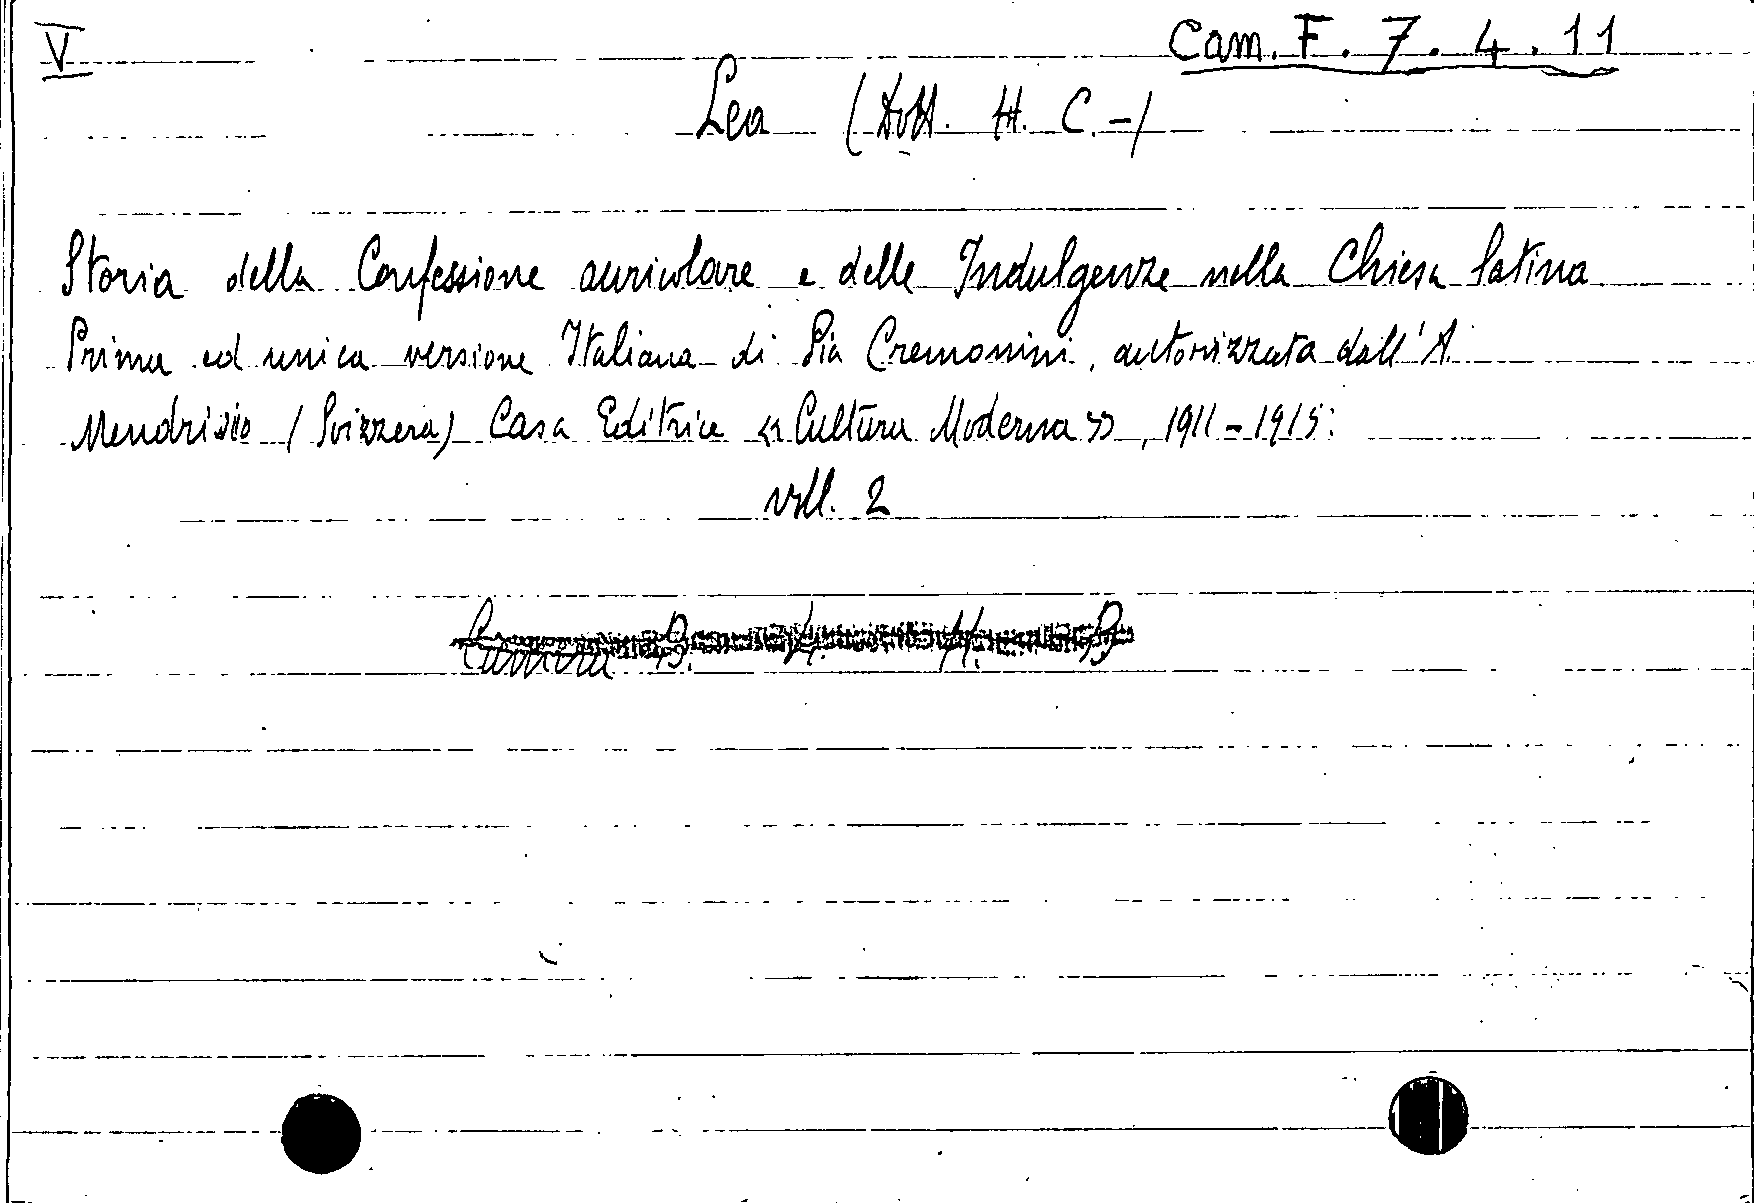 V
Cam. F. 7. 4. 11
Lea (Dott. H. C. -)
Storia della Confessione auricolare e delle Indulgenze nella Chiesa latina
Prima ed unica versione Italiana di Pia Cremonini, autorizzata dall'A.
Mendrisio (Svizzera) Casa Editrice « Cultura Moderna », 1911 - 1915:
voll. 2
Camera B.